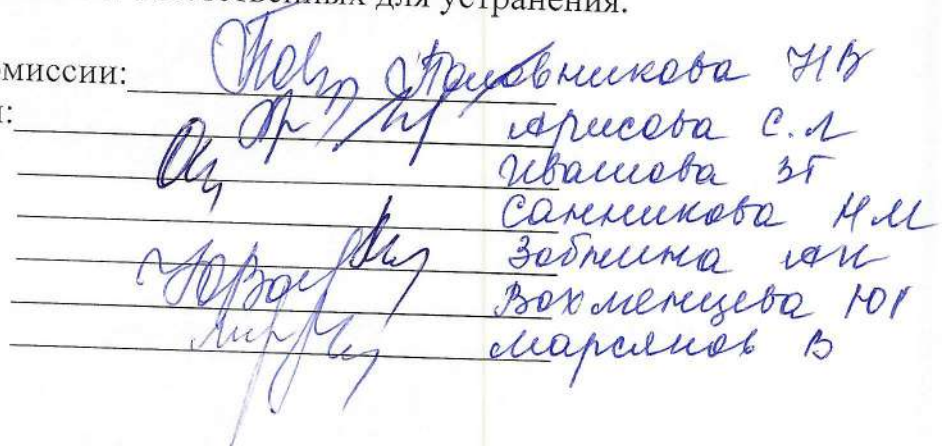 ственных для устранения.
омиссии: Половникова НВ
: Арисова С.Л
Ивашова ЗГ
Санникова НМ
АН
Вохменцева ЮГ
Марсянов В